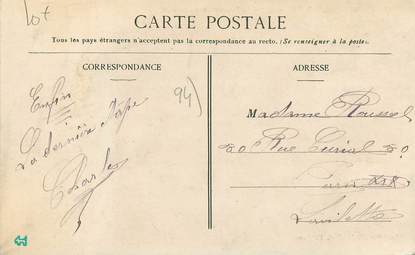 lot
CARTE POSTALE
Tous les pays étrangers n'acceptent pas la correspondance au recto. (Se renseigner à la poste).
CORRESPONDANCE
ADRESSE
94)
Enfin
La dernière étape
Charles
Madame Roussel
20 Rue Curial 20
Paris